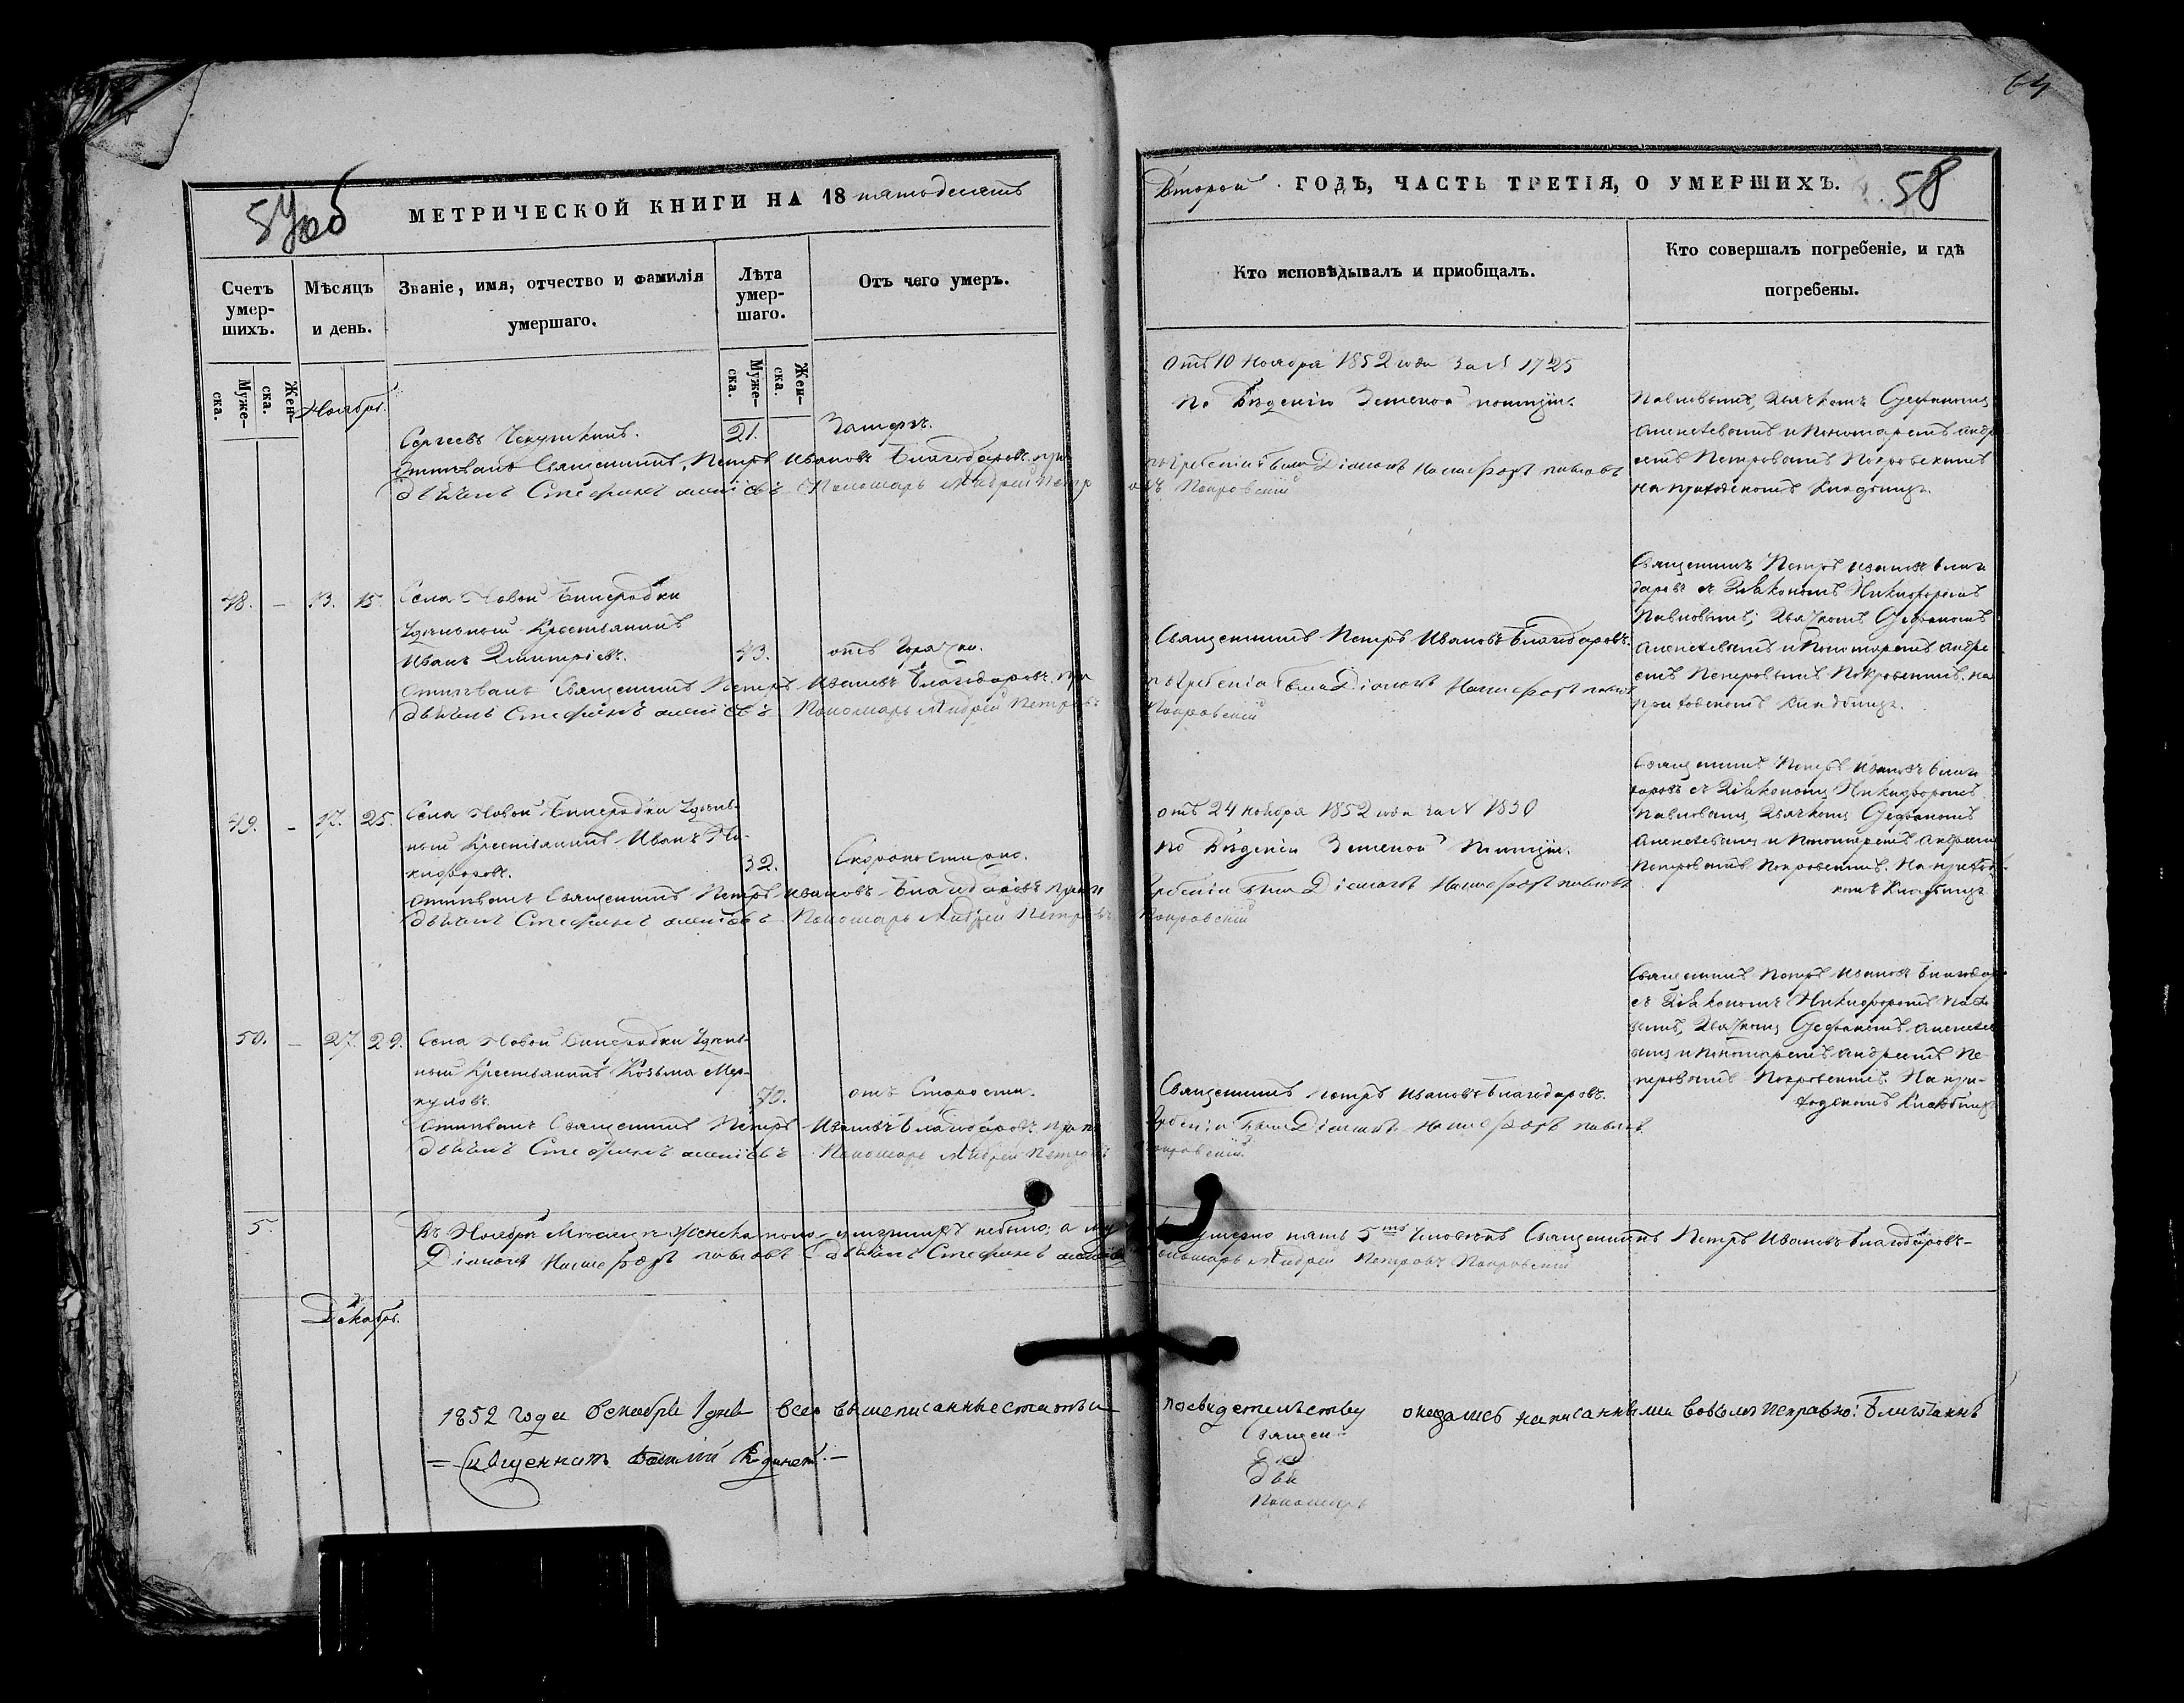 64
МЕТРИЧЕСКОЙ КНИГИ НА 18 пятьдесятъ
Второй ГОДЪ, ЧАСТЬ ТРЕТІЯ, О УМЕРШИХЪ.
58
Счетъ умер-
шихъ.
Муже-
ска.
Жен-
ска.
Мѣсяцъ
и день.
Званіе, имя, отчество и фамилія
умершаго.
Лѣта
умер-
шаго.
Муже-
ска.
Жен-
ска.
Отъ чего умеръ.
Кто исповѣдывалъ и пріобщалъ.
Кто совершалъ погребеніе, и гдѣ
погребены.
Ноябрь.
Сергѣевъ
21.
отпѣвалъ Священникъ Петръ Ивановъ Благодаровъ при
дьячекъ Стефанъ Пономарь Андрей Петр
отъ 10 Ноября 1852 года за № 1725
По Вѣденію Земской полиціи.
погребеніи былъ Діаконъ Никифоръ Павловъ
овъ Покровскій
Павловымъ, Дьячкомъ Стефаномъ
Алексѣевымъ и Пономаремъ Андре
емъ Петровымъ Покровскимъ
на приходскомъ Кладбищѣ.
48. - 13. 15.
Села Новой Бинарадки
Удѣльный Крестьянинъ
Иванъ Димитріевъ.
43.
отъ Горячки.
отпѣвалъ Священникъ Петръ Ивановъ Благодаровъ при
дьячекъ Стефанъ Пономарь Андрей Петровъ
Священникъ Петръ Ивановъ Благодаровъ.
погребеніи былъ Діаконъ Никифоръ Павловъ
Покровскій
Священникъ Петръ Ивановъ Благо
даровъ съ Діакономъ Никифоромъ
Павловымъ, Дьячкомъ Стефаномъ
Алексѣевымъ и Пономаремъ Андре
емъ Петровымъ Покровскимъ, на
приходскомъ Кладбищѣ.
49. - 17. 25.
Села Новой Бинарадки Удѣль-
ный Крестьянинъ Иванъ Ни-
кифоровъ.
32.
Скоропостижно.
отпѣвалъ Священникъ Петръ Ивановъ Благодаровъ при по
дьячекъ Стефанъ Пономарь Андрей Петровъ
отъ 24 ноября 1852 года за № 1830
По Вѣденію Земской Полиціи.
гребеніи былъ Діаконъ Никифоръ Павловъ
Покровскій
Священникъ Петръ Ивановъ Благо
даровъ съ Діакономъ Никифоромъ
Павловымъ, Дьячкомъ Стефаномъ
Алексѣевымъ и Пономаремъ Андреемъ
Петровымъ Покровскимъ. На приходс-
комъ Кладбищѣ.
50. - 27. 29.
Села Новой Бинарадки Удѣль-
ный Крестьянинъ Козьма Мер-
куловъ.
70.
отъ Старости.
отпѣвалъ Священникъ Петръ Ивановъ Благодаровъ при по
дьячекъ Стефанъ Пономарь Андрей Петровъ
Священникъ Петръ Ивановъ Благодаровъ.
гребеніи былъ Діаконъ Никифоръ Павловъ
Покровскій
Священникъ Петръ Ивановъ Благодаро
съ Діакономъ Никифоромъ Павло
вымъ, Дьячкомъ Стефаномъ Алексѣе
вымъ и Пономаремъ Андреемъ Пе-
тровымъ Покровскимъ. На при-
ходскомъ Кладбищѣ
5.
Въ Ноябрѣ Мѣсяцѣ Женска пола умершихъ небыло, а му умерло пять 5ть Человѣкъ Священникъ Петръ Ивановъ Благодаровъ-
Діаконъ Никифоръ Павловъ Дьячекъ Стефанъ Пономарь Андрей Петровъ Покровскій
Декабрь.
1852 года декабря 1 дня всѣ вышеписанные статьи по свидетельству оказались написанными во всемъ исправно: Благочинный
= Священникъ
Священ
Діак
Дья
Пономарь